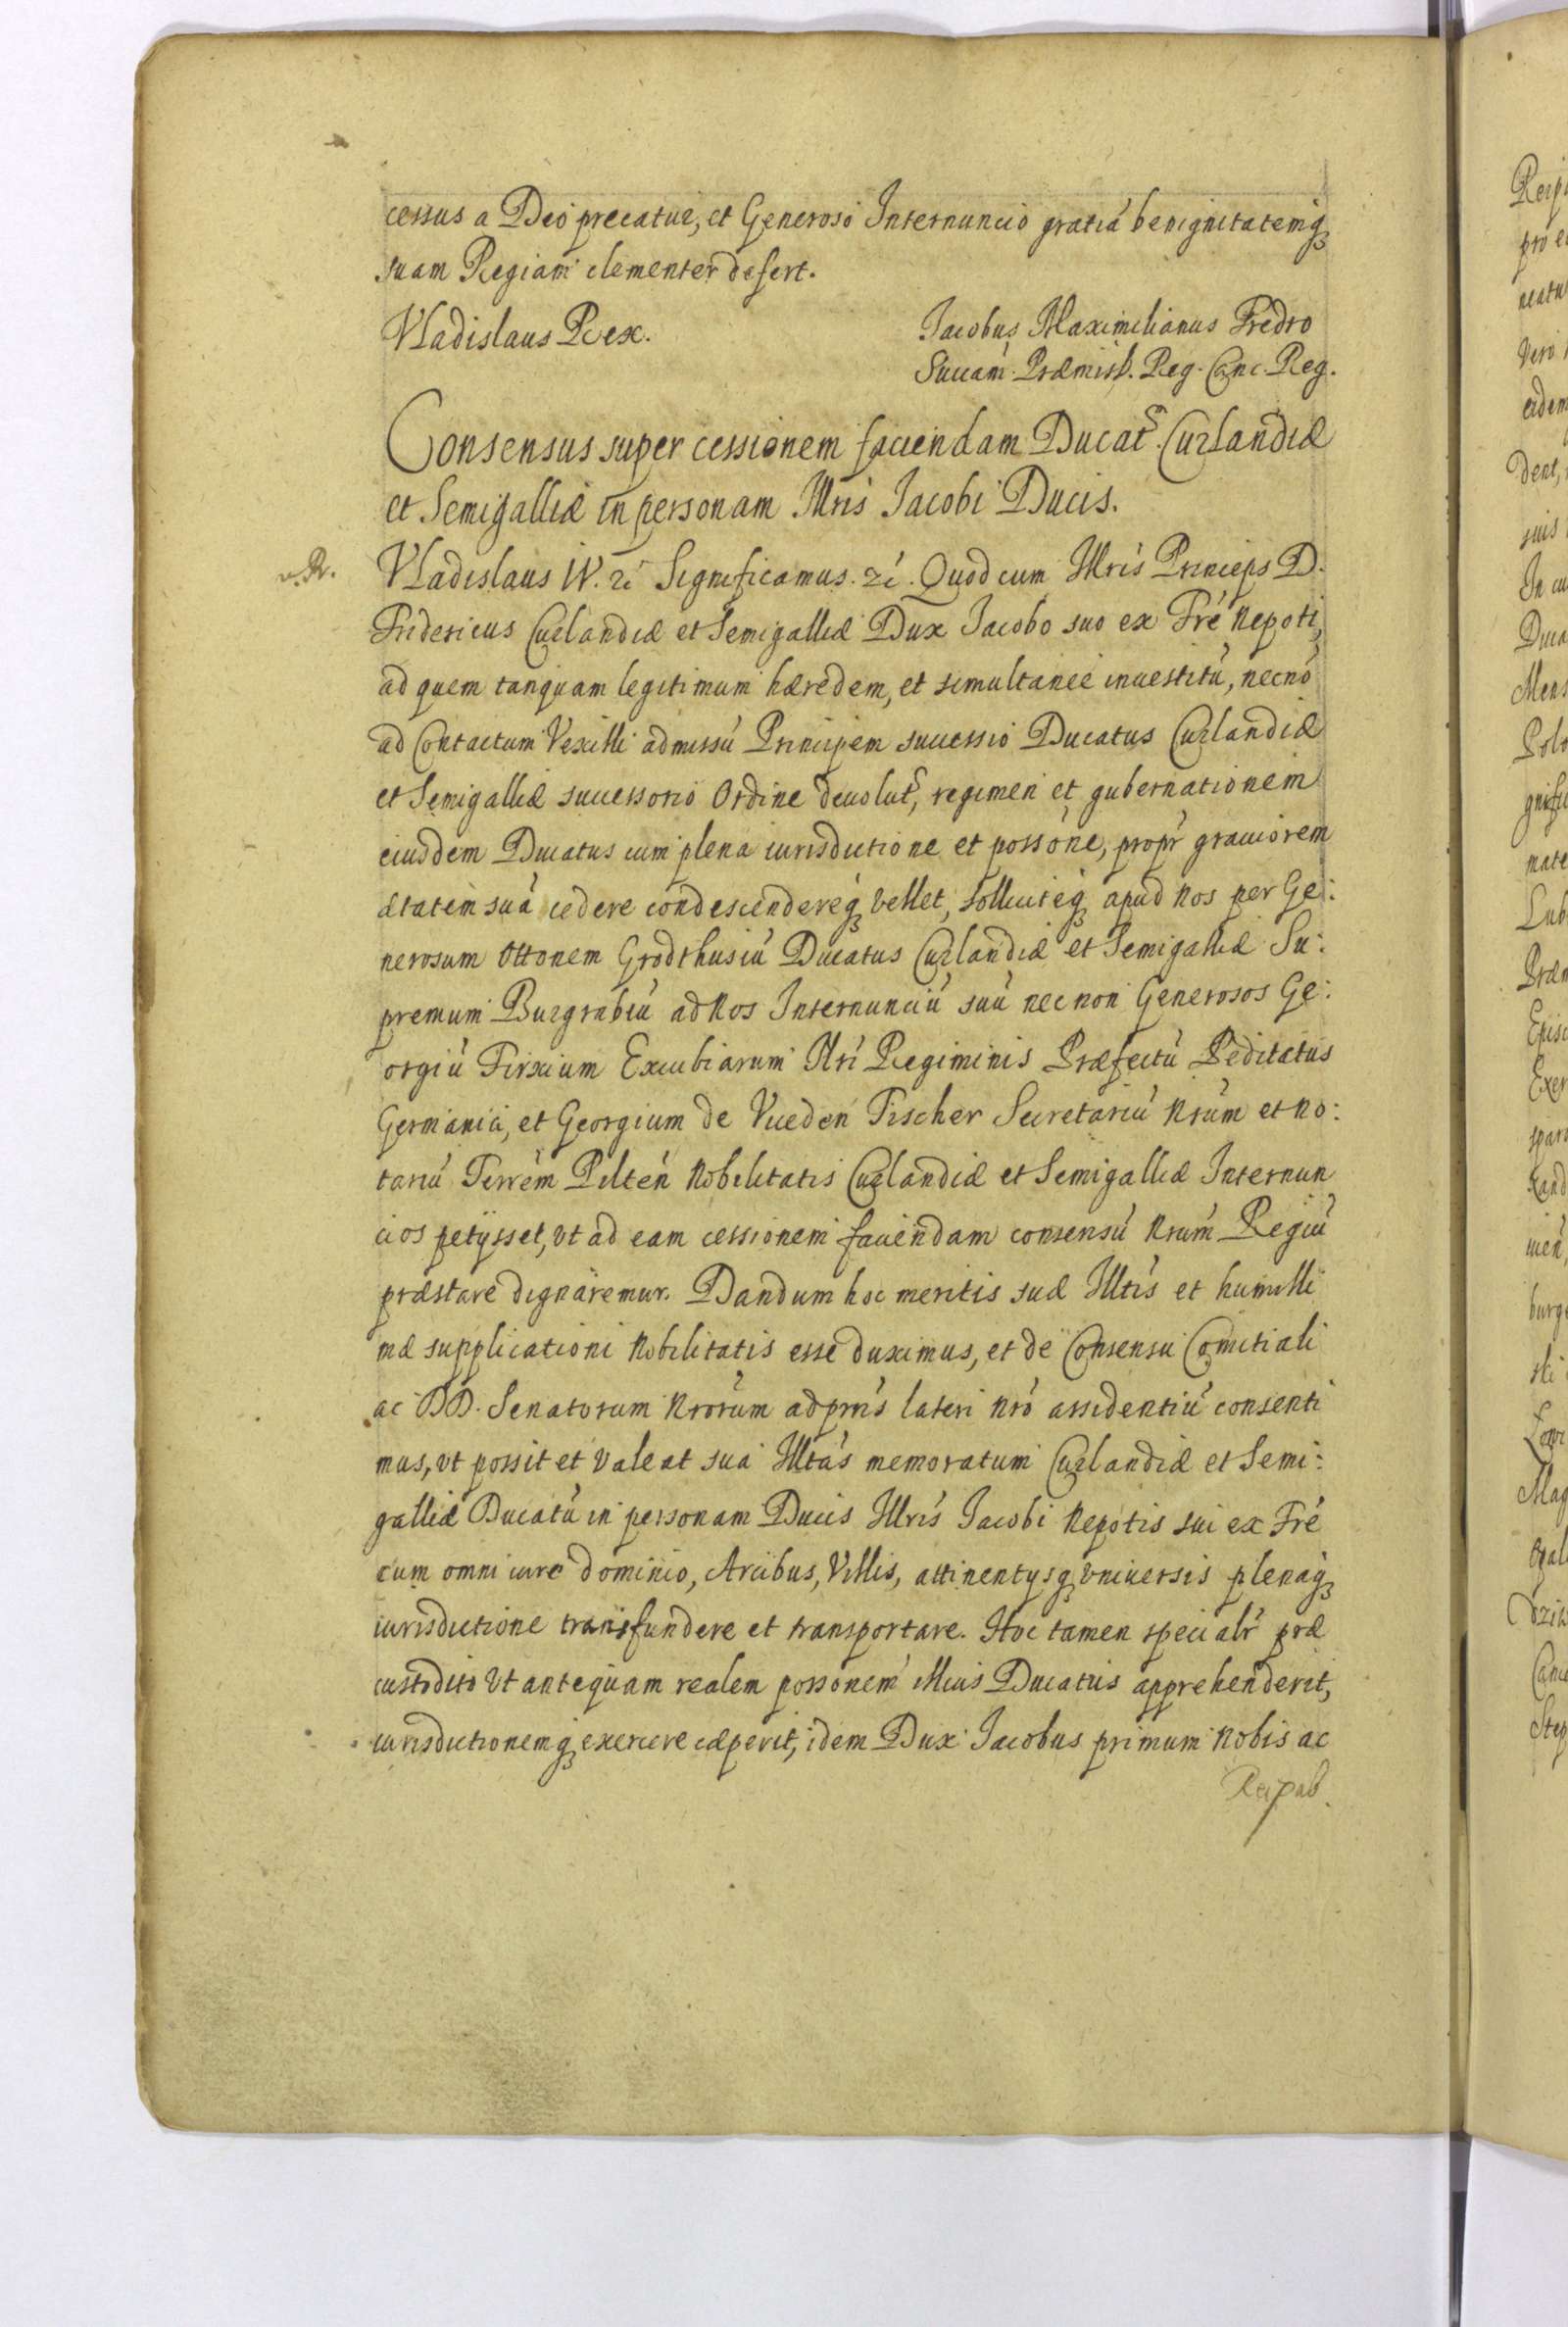 cessus a Deo precatur, et Generoso Internuncio gratiá benignitatemq̃
suam Regiam clementer defert.
Vladislaus Rex.
Jacobus Maximilianus Fredro
Succam. Præmisl. Reg. Canc. Reg.
Consensus super cessionem faciendam Ducat9. Curlandiæ
et Semigalliæ in personam Illris Jacobi Ducis.
Vladislaus IV. ꝛć Significamus. ꝛć. Quod cum Illris Princeps D.
Fridericus Curlandiæ et Semigalliæ Dux Jacobo suo ex Fré Nepoti,
ad quem tanquam legitimum hæredem, et simultaneé inuestitú, necnó
ad Contactum Vexilli admissú Principem successio Ducatus Curlandiæ
et Semigalliæ successorio Ordine deuolut9, regimen et gubernationem
eiusdem Ducatus cum plena iurisdictione et possóne, propŕ grauiorem
ætatem suá cedere condescendereq̃ vellet, sollicitéq̃ apud Nos per Ge:
nerosum Ottonem Grodthusiú Ducatus Curlandiæ et Semigalliæ Su:
premum Burgrabiú ad Nos Internunciú suú nec non Generosos Ge:
orgiú Firxium Excubiarum Nri Regiminis Præfectú Peditatus
Germanici, et Georgium de Vueden Fischer Secretariú Nrúm et No:
tariú Terrém Piltén Nobilitatis Curlandiæ et Semigalliæ Internun
cios petijsset, vt ad eam cessionem faciendam consensú Nrúm Regiú
præstare dignaremur. Dandum hoc meritis suæ Illtis et humilli
mæ supplicationi Nobilitatis esse duximus, et de Consensu Comitiali
ac DD. Senatorum Nrorúm ad prńs lateri Nró assidentiú consenti
mus, vt possit et valeat sua Illtás memoratum Curlandiæ et Semi:
galliæ Ducatú in personam Ducis Illrís Jacobi Nepotis sui ex Fré
cum omni iure dominio, Arcibus, Villis, attinentysq̃ vniuersis plenaq̃
iurisdictione transfundere et transportare. Hoc tamen specialŕ præ
custodito Vt antequam realem possonem illius Ducatus apprehenderit,
iurisdictionemq̃ exercere cæperit, idem Dux Jacobus primum Nobis ac
Reipub.